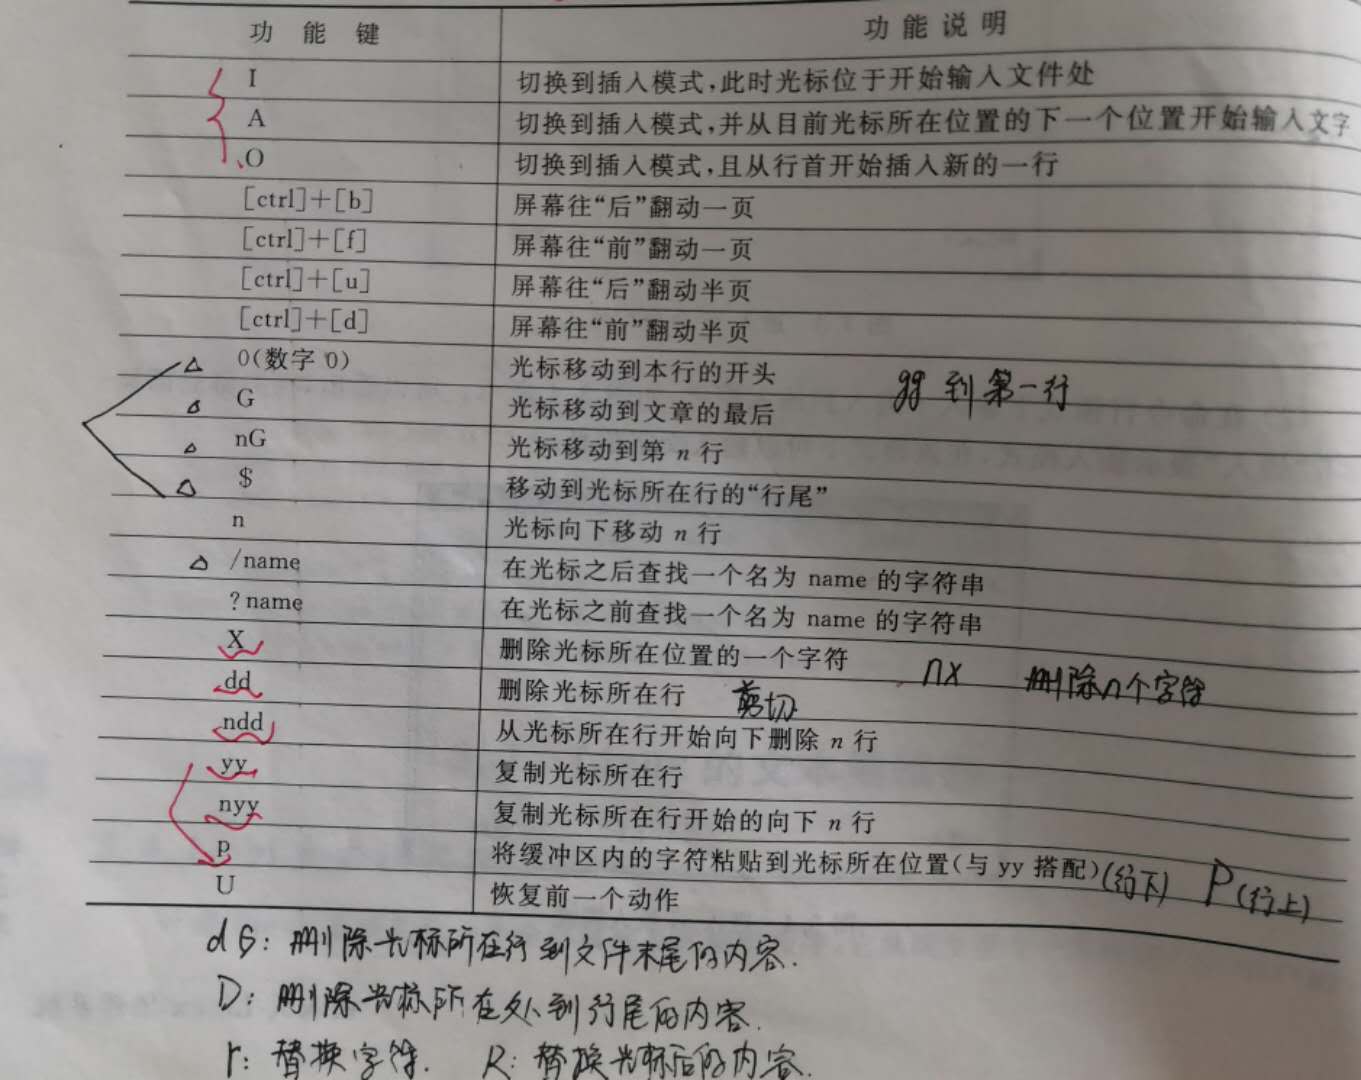 功 能 键 功 能 说 明
I 切换到插入模式,此时光标位于开始输入文件处
A 切换到插入模式,并从目前光标所在位置的下一个位置开始输入文字
O 切换到插入模式,且从行首开始插入新的一行
[ctrl]+[b] 屏幕往“后”翻动一页
[ctrl]+[f] 屏幕往“前”翻动一页
[ctrl]+[u] 屏幕往“后”翻动半页
[ctrl]+[d] 屏幕往“前”翻动半页
0(数字 0) 光标移动到本行的开头
gg 到第一行
G 光标移动到文章的最后
nG 光标移动到第 n 行
$ 移动到光标所在行的“行尾”
n 光标向下移动 n 行
/name 在光标之后查找一个名为 name 的字符串
?name 在光标之前查找一个名为 name 的字符串
X 删除光标所在位置的一个字符 nx 删除n个字符
dd 删除光标所在行 剪切
ndd 从光标所在行开始向下删除 n 行
yy 复制光标所在行
nyy 复制光标所在行开始的向下 n 行
p 将缓冲区内的字符粘贴到光标所在位置(与 yy 搭配)(行下) P(行上)
U 恢复前一个动作
dG: 删除光标所在行到文件末尾的内容.
D: 删除光标所在处到行尾的内容.
r: 替换字符. R: 替换光标后的内容.